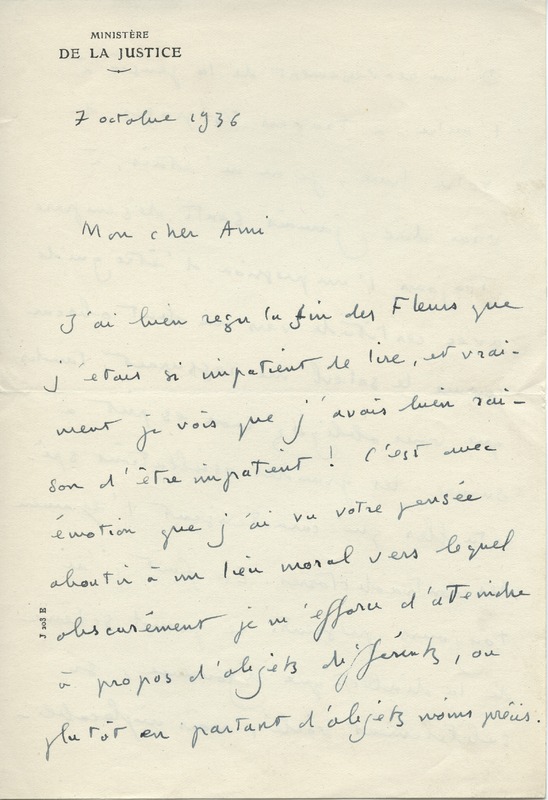 MINISTÈRE
DE LA JUSTICE
7 octobre 1936
Mon cher Ami
J'ai bien reçu la fin des Fleurs que
j'étais si impatient de lire, et vrai-
ment je vois que j'avais bien rai-
son d'être impatient ! C'est avec
émotion que j'ai vu votre pensée
aboutir à un lieu moral vers lequel
obscurément je m'efforce d'atteindre
à propos d'objets différents, ou
plutôt en partant d'objets moins précis.
J 208 E